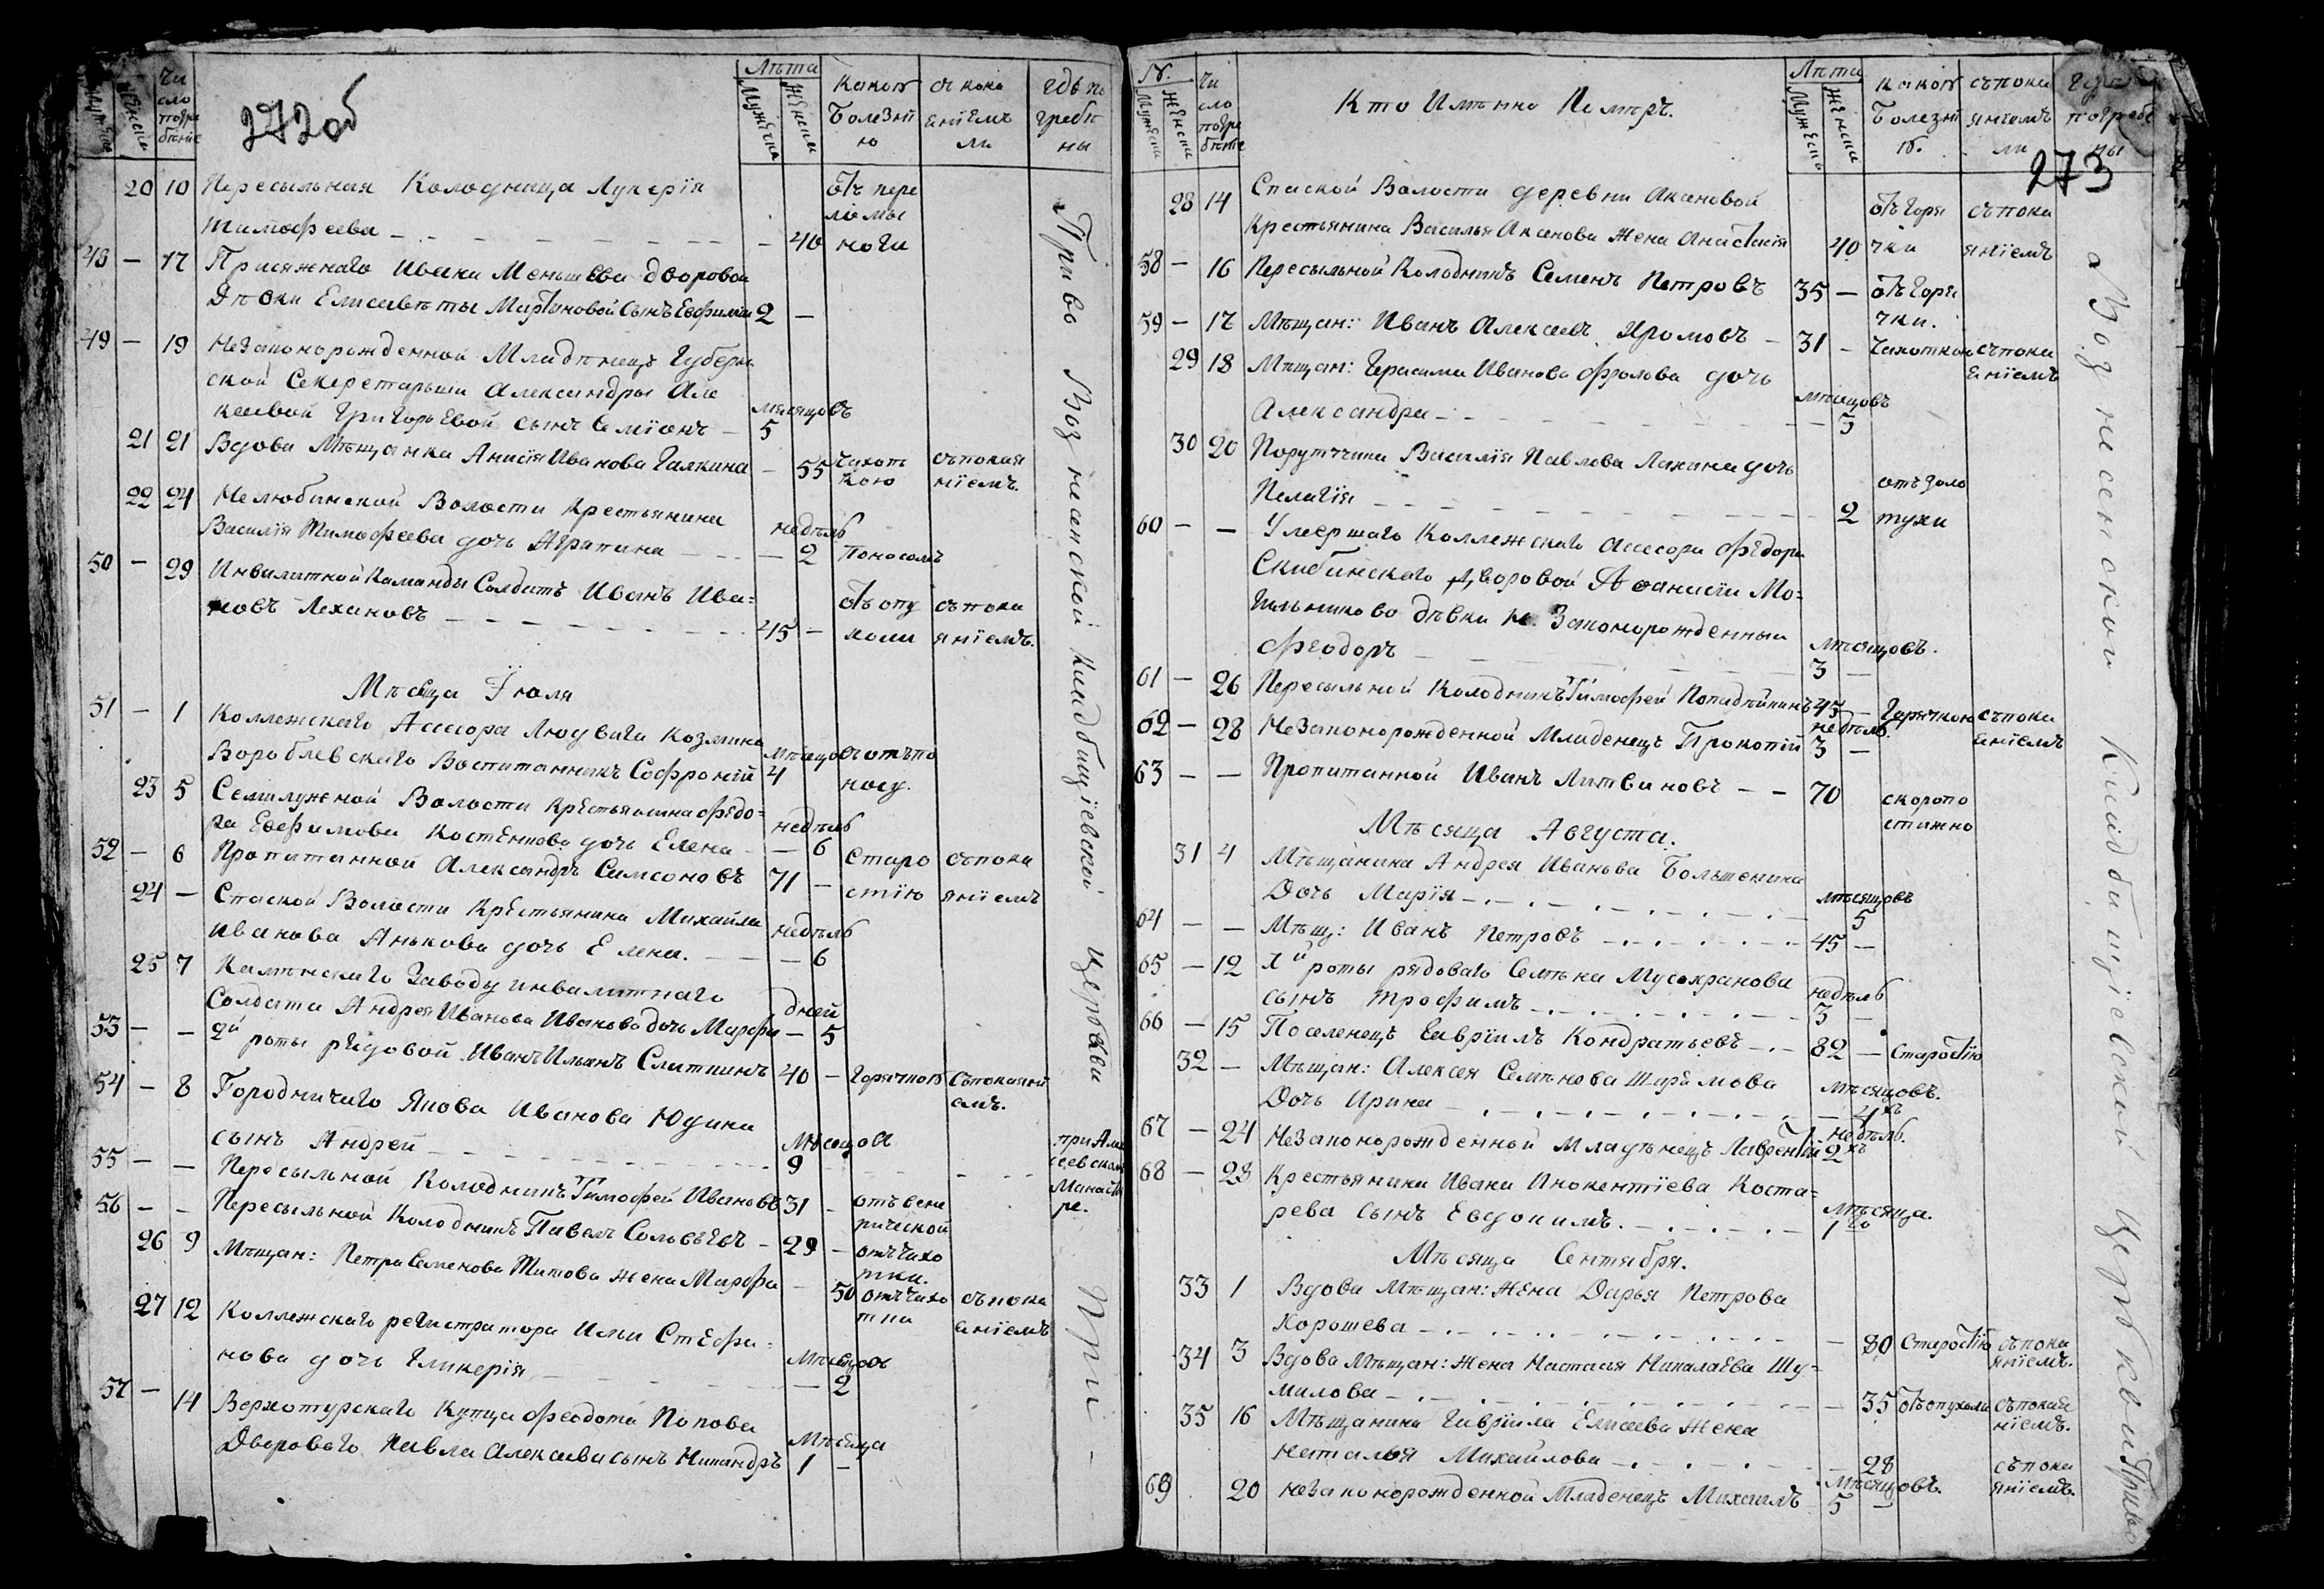 Мужеска
Женска
Чи
сло
погре
бенiе
272об
Лѣта
Мужеска
Женска
Какою
Болезнi
ю
съ пока
енiемъ
ли
гдѣ по
гребѣ
ны
20 10 Пересыльная Колодница Лукерiя
Тимофеева — 40 отъ пере
ломы
ноги
48 — 17 Присяжнаго Ивана Меньшева дворовой
Дѣвки Елисаветы Мартыновой сынъ Евфимiй 2 —
49 — 19 Незаконорожденной Младѣнецъ Губерн
ской Секретарши Александры Але
ксеевой Григорьевой сынъ Семiонъ — мѣсяцовъ 5
21 21 Вдова Мѣщанка Анисiя Иванова Галкина — 55 Чахот
кою съ покая
нiемъ.
22 24 Нелюбинской Волости Крестьянина
Василiя Тимофеева дочь Агрипина — недѣль 2 Поносомъ
50 — 29 Инвалитной Команды Солдатъ Иванъ Ива=
новъ Лехановъ — 45 — отъ опу
холи съ пока
янiемъ.
Мѣсяца Iюля
51 — 1 Коллежскаго Ассесора Людвига Козмина
Вороблевскаго Воспитанникъ Софронiй мѣсяцовъ 4 отъ по
носу.
23 5 Семилужной Волости Крестьянина Федо=
ра Евфимова Костенкова дочь Елена — недѣль 6
52 — 6 Пропитанной Александръ Самсоновъ 71 — Старо
стiю съ пока
янiемъ
24 — Спаской Волости Крестьянина Михайла
Иванова Анькова дочь Елена. — недѣль 6
25 7 Каменскаго Заводу инвалитнаго
Солдата Андрея Иванова Иванова дочь Марфа — дней 5
53 — — 2й роты рядовой Иванъ Ильинъ Слиткинъ 40 — Горячкою съ покаянi
емъ.
54 — 8 Городничаго Якова Иванова Юдина
сынъ Андрей — мѣсяцовъ 9
при Але
ксеевском
Манасты
ре.
55 — — Пересыльной Колодникъ Тимофей Ивановъ 31 — отъ вене
рической
56 — — Пересыльной Колодникъ Павелъ Соловьевъ — 29 — отъ чахо
тки.
26 9 Мѣщан: Петра Семенова Титова жена Марфа — 50 отъ чахо
тки съ пока
енiемъ
27 12 Коллежскаго регистратора Ильи Стефа=
нова дочь Гликерiя — мѣсяцовъ 2
57 — 14 Верхотурскаго Купца Феодота Попова
Двороваго Павла Алексеева сынъ Никандръ мѣсяца 1 —
Приво Вознесенской Кладбищiевской церькви При —
№.
Мужеска
Женска
Чи
сло
погре
бенiе
Кто Имѣнно Померъ.
Лѣта
Мужеска
Женска
Какою
Болезнi
ю.
съ пока
янiемъ
ли
погребе
ны
273
28 14 Спаской Волости деревни Акановой
Крестьянина Василья Аканова жена Анастасiя 40 отъ горя
чки съ пока
янiемъ
58 — 16 Пересыльной Колодникъ Семенъ Петровъ 35 — отъ горя
чки.
59 — 17 Мѣщан: Иванъ Алексеевъ Хромовъ — 31 — Чахоткою съ пока
енiемъ
29 18 Мѣщан: Герасима Иванова Фролова дочь
Александра — мѣсяцовъ 3
30 20 Порутчика Василiя Павлова Лакина дочь
Пелагiя — 2 отъ золо
тухи
60 — — Умершаго Коллежскаго Ассесора Федора
Скибинскаго Дворовой Афанасiи Мо=
гильниково дѣвки не Законорожденный
Феодоръ — мѣсяцовъ. 3 —
61 — 26 Пересыльной Колодникъ Тимофей Попадѣйкинъ 45 — Горячкою съ пока
енiемъ
62 — 28 Незаконорожденной Младенецъ Прокопiй недѣль. 3 —
63 — — Пропитанной Иванъ Литвиновъ — — 70 скоропо
стижно
Мѣсяца Августа.
31 4 Мѣщанина Андрея Иванова Большенина
Дочь Марiя — мѣсяцовъ 5
64 — — Мѣщ: Иванъ Петровъ — 45 —
65 — 12 1й роты рядоваго Семена Мусохранова
сынъ Трофимъ — недѣль 3 —
66 — 15 Поселенецъ Гаврiилъ Кондратьевъ — 82 — Старостiю
32 — Мѣщан: Алексея Семенова Ширямова
Дочь Ирина — мѣсяцовъ. 4хъ
67 — 24 Незаконорожденной Младѣнецъ Лаврентiй недѣль. 2хъ
68 — 23 Крестьянина Ивана Инокентiева Коста=
рева сынъ Евдокимъ. — мѣсяца. 1го
Мѣсяца Сентября.
33 1 Вдова Мѣщан: жена Дарья Петрова
Хорошева — 80 Старостiю съ пока
янiемъ.
34 3 Вдова Мѣщан: жена Настасья Николаева Шу=
милова — 35 отъ опухоли съ покая
нiемъ.
35 16 Мѣщанина Гаврiила Елисеева жена
Наталья Михайлова — 28 съ пока
янiемъ.
69 20 незаконорожденной Младенецъ Михаилъ мѣсяцовъ. 5 —
Вознесенской Кладбищiевской церькви Приво